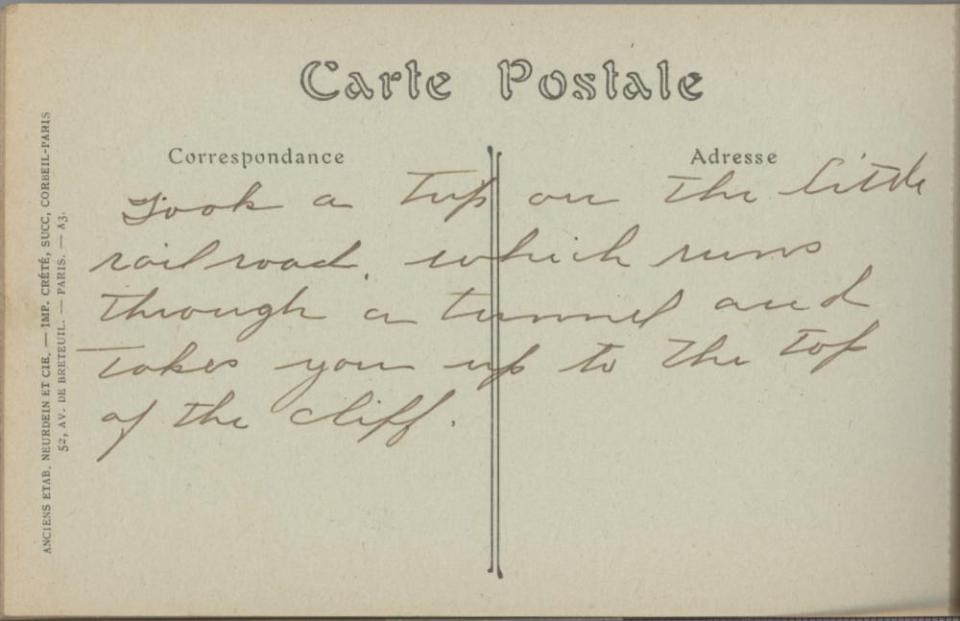 Carte Postale
Correspondance
Adresse
Took a trip on the little
railroad, which runs
through a tunnel and
takes you up to the top
of the cliff.
ANCIENS ETAB. NEURDEIN ET CIE. — IMP. CRÉTÉ, SUCC, CORBEIL-PARIS
52, AV. DE BRETEUIL. — PARIS. — A3.